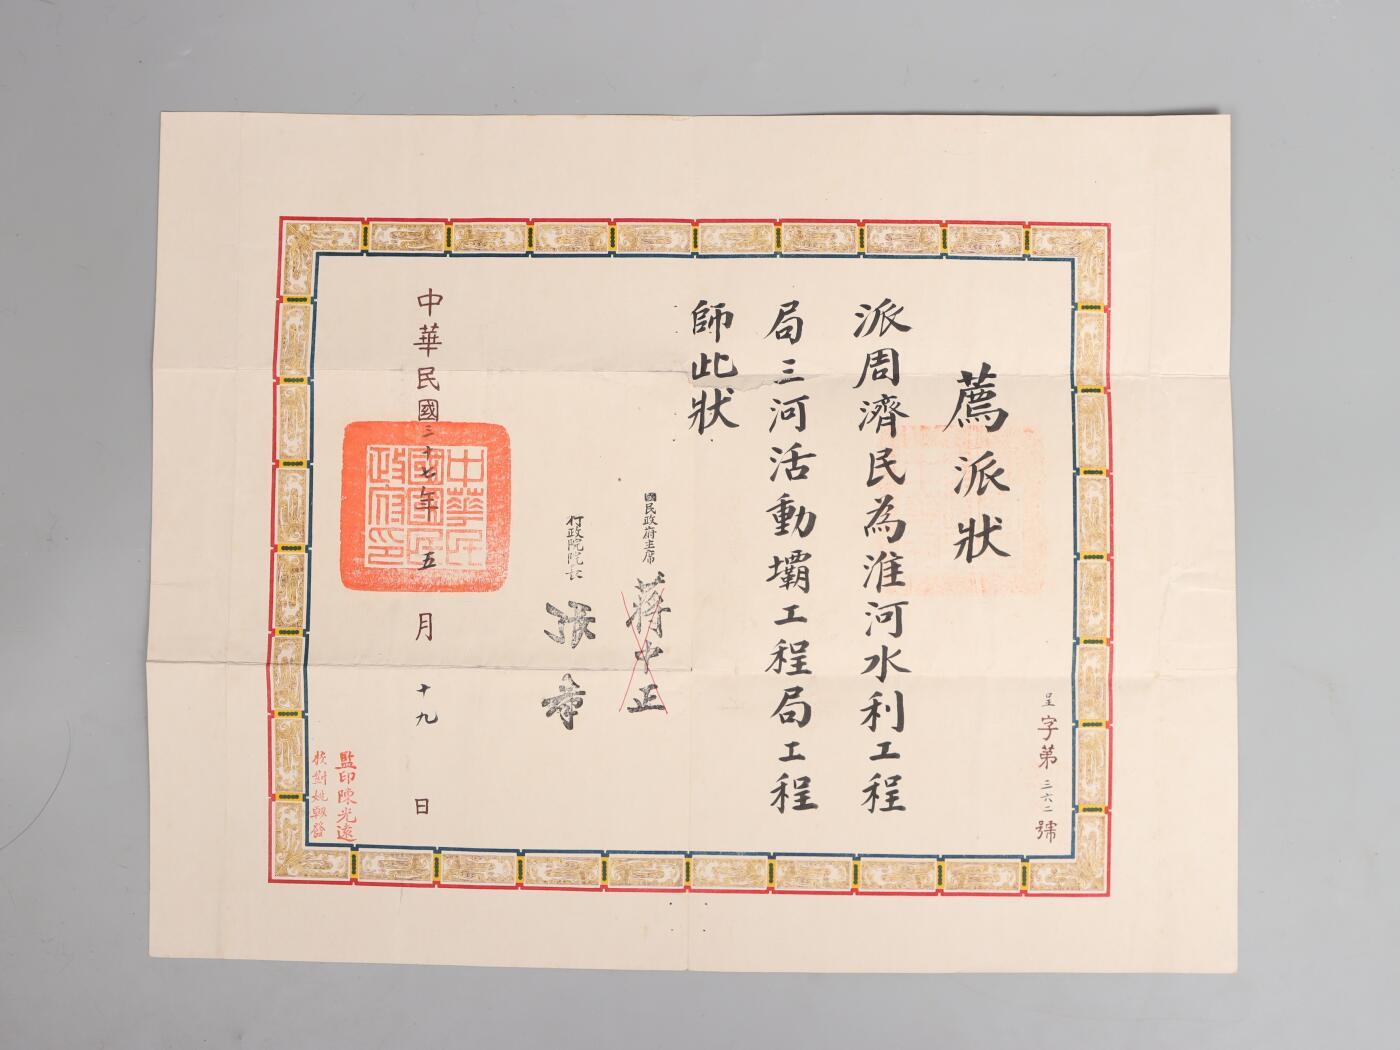 薦派狀
派周濟民為淮河水利工程
局三河活動壩工程局工程
師此狀
國民政府主席 蔣中正
行政院院長 張羣
中華民國三十七年五月十九日
中華民國國民政府印
呈字第三六二號
監印陳光遠
校對姚翱發